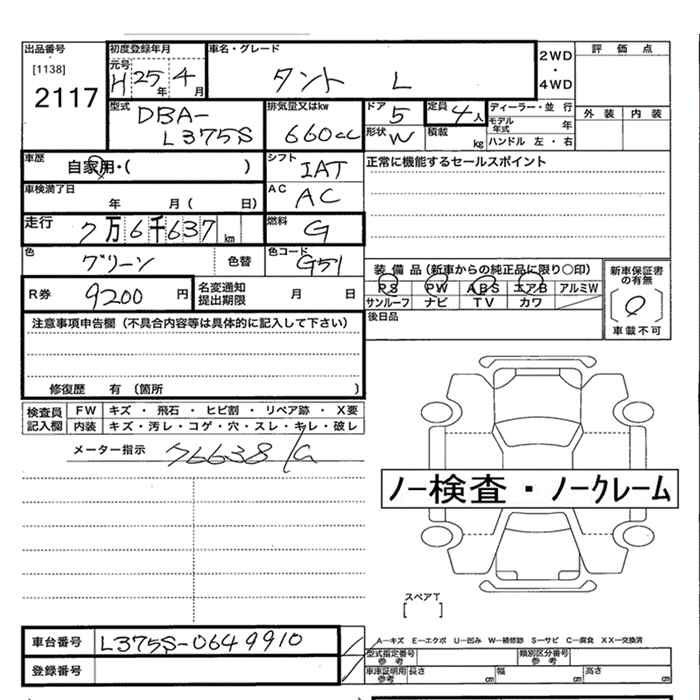 出品番号 初度登録年月 車名・グレード 2WD 評価点
[1138] 元号 H 25年 4月 タント L ・
2117 4WD
型式 DBA-L375S 排気量又はkw 660cc ドア 5 定員 4人 ディーラー・並行 外装 内装
形状 W 積載 kg モデル年式 年
ハンドル 左・右
車歴 自家用・( ) シフト IAT 正常に機能するセールスポイント
車検満了日 年 月( 日) AC AC
走行 7万6千637km 燃料 G
色 グリーン 色替 色コード G51 装備品(新車からの純正品に限り○印) 新車保証書の有無
R券 9200円 名変通知提出期限 月 日 PS PW ABS エアB アルミW
サンルーフ ナビ TV カワ
注意事項申告欄(不具合内容等は具体的に記入して下さい) 後日品 車載不可
修復歴 有(箇所 )
検査員記入欄 FW キズ・飛石・ヒビ割・リペア跡・X要
内装 キズ・汚レ・コゲ・穴・スレ・キレ・破レ
メーター指示 76638K
ノー検査・ノークレーム
スペアT
[ ]
車台番号 L375S-0649910 A―キズ E―エクボ U―凹み W―補修跡 S―サビ C―腐食 XX―交換済
型式指定番号 参考 類別区分番号 参考
登録番号 車庫証明用 参考 長さ cm 幅 cm 高さ cm